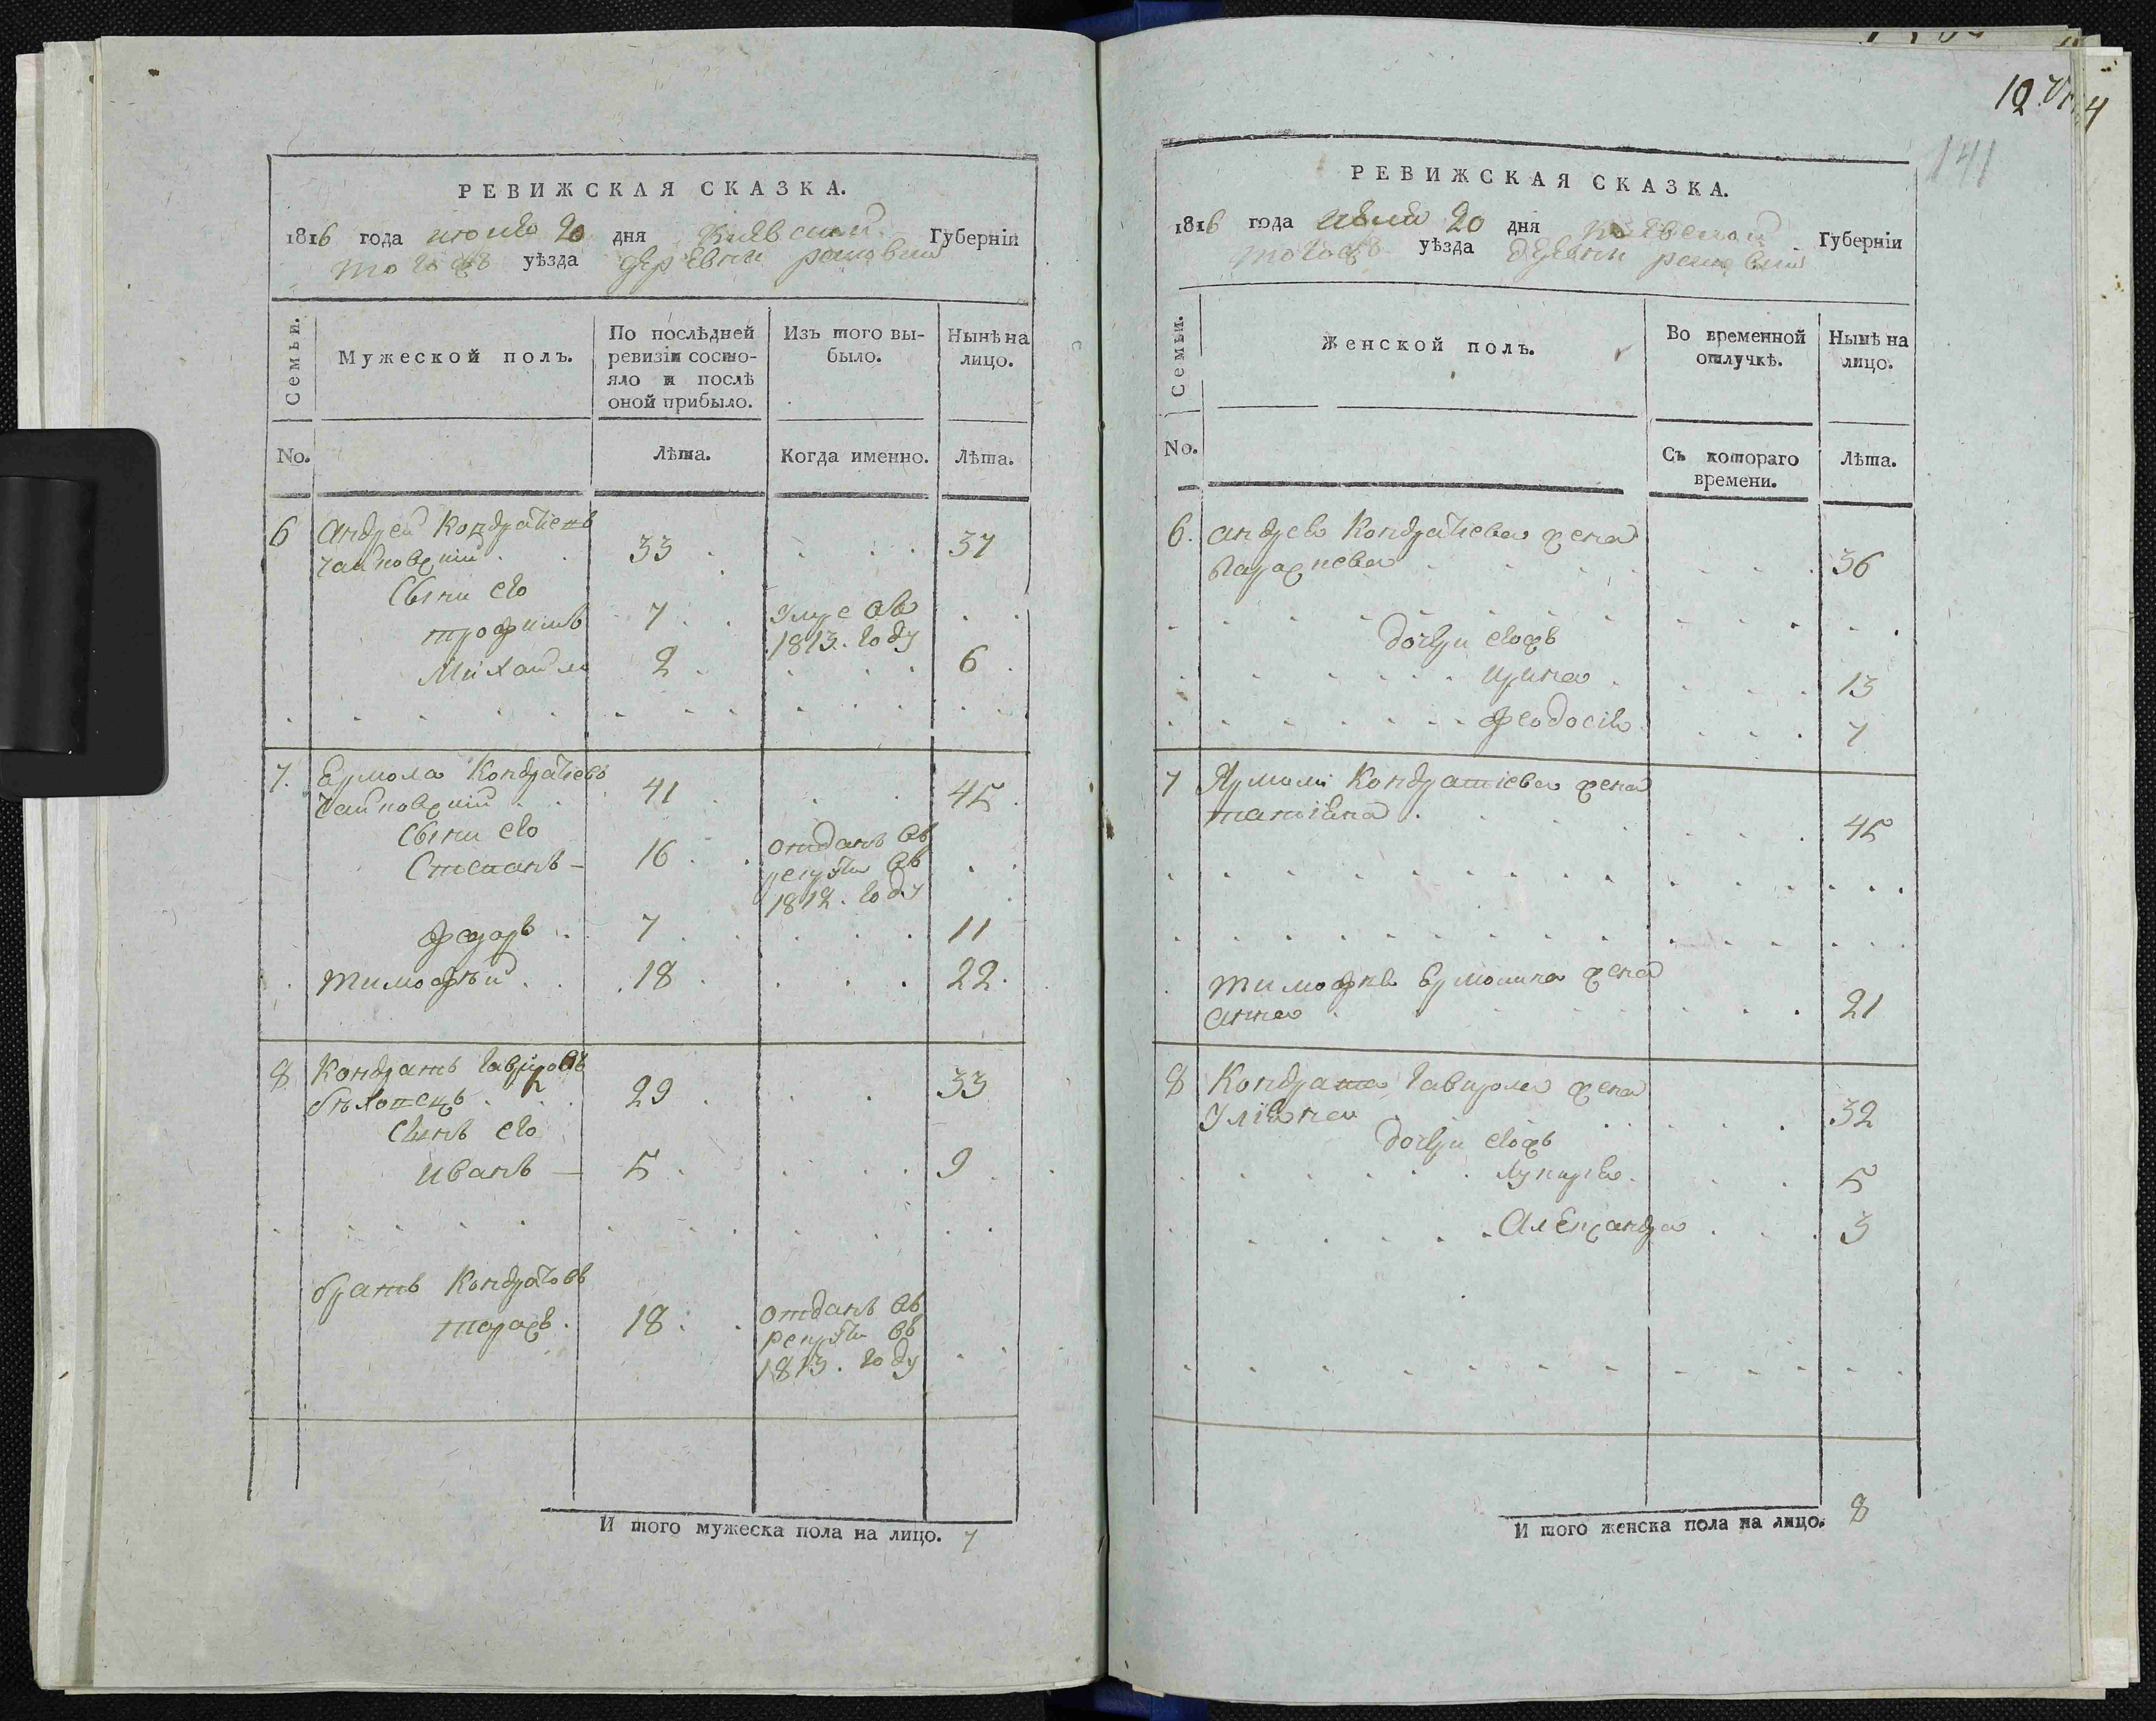 РЕВИЖСКАЯ СКАЗКА.
1816 года июля 20 дня Киевской Губернїи
тогожъ уѣзда деревни
Семьи.
Мужеской полъ.
По послѣдней ревизїи состо-
яло и послѣ
оной прибыло.
Изъ того вы-
было.
Нынѣ на
лицо.
No.
Лѣта.
Когда именно.
Лѣта.
6 Андрей Кондратіевъ
Чайковскій 33 37
Сыни его
трофимъ 7 умре въ
1813. году
Михайло 2 6
7. Ермола Кондратіевъ
Чайковскій 41 45
Сыни его
Степанъ 16 отданъ въ
рекруты въ
1812. году
Федоръ 7 11
Тимофѣй 18 22
8 Кондратъ Гавриловъ
29 33
Сынъ его
Иванъ 5 9
братъ Кондратовъ
тарасъ 18 отданъ въ
рекруты въ
1813. году
И того мужеска пола на лицо. 7
12
141
РЕВИЖСКАЯ СКАЗКА.
1816 года июля 20 дня Киевской Губернїи
тогожъ уѣзда деревни
Семьи.
Женской полъ.
Во временной
отлучкѣ.
Нынѣ на
лицо.
No.
Съ котораго
времени.
Лѣта.
6. Андрея Кондратіева жена
36
дочери егожъ
Ирина 13
Феодосія 7
7 Ярмоли Кондратіева жена
татіана 45
Тимофея Ермолина жена
анна 21
8 Кондрата Гаврила жена
Уліяна 32
дочери егожъ
Лукирія 5
Александра 3
И того женска пола на лицо. 8